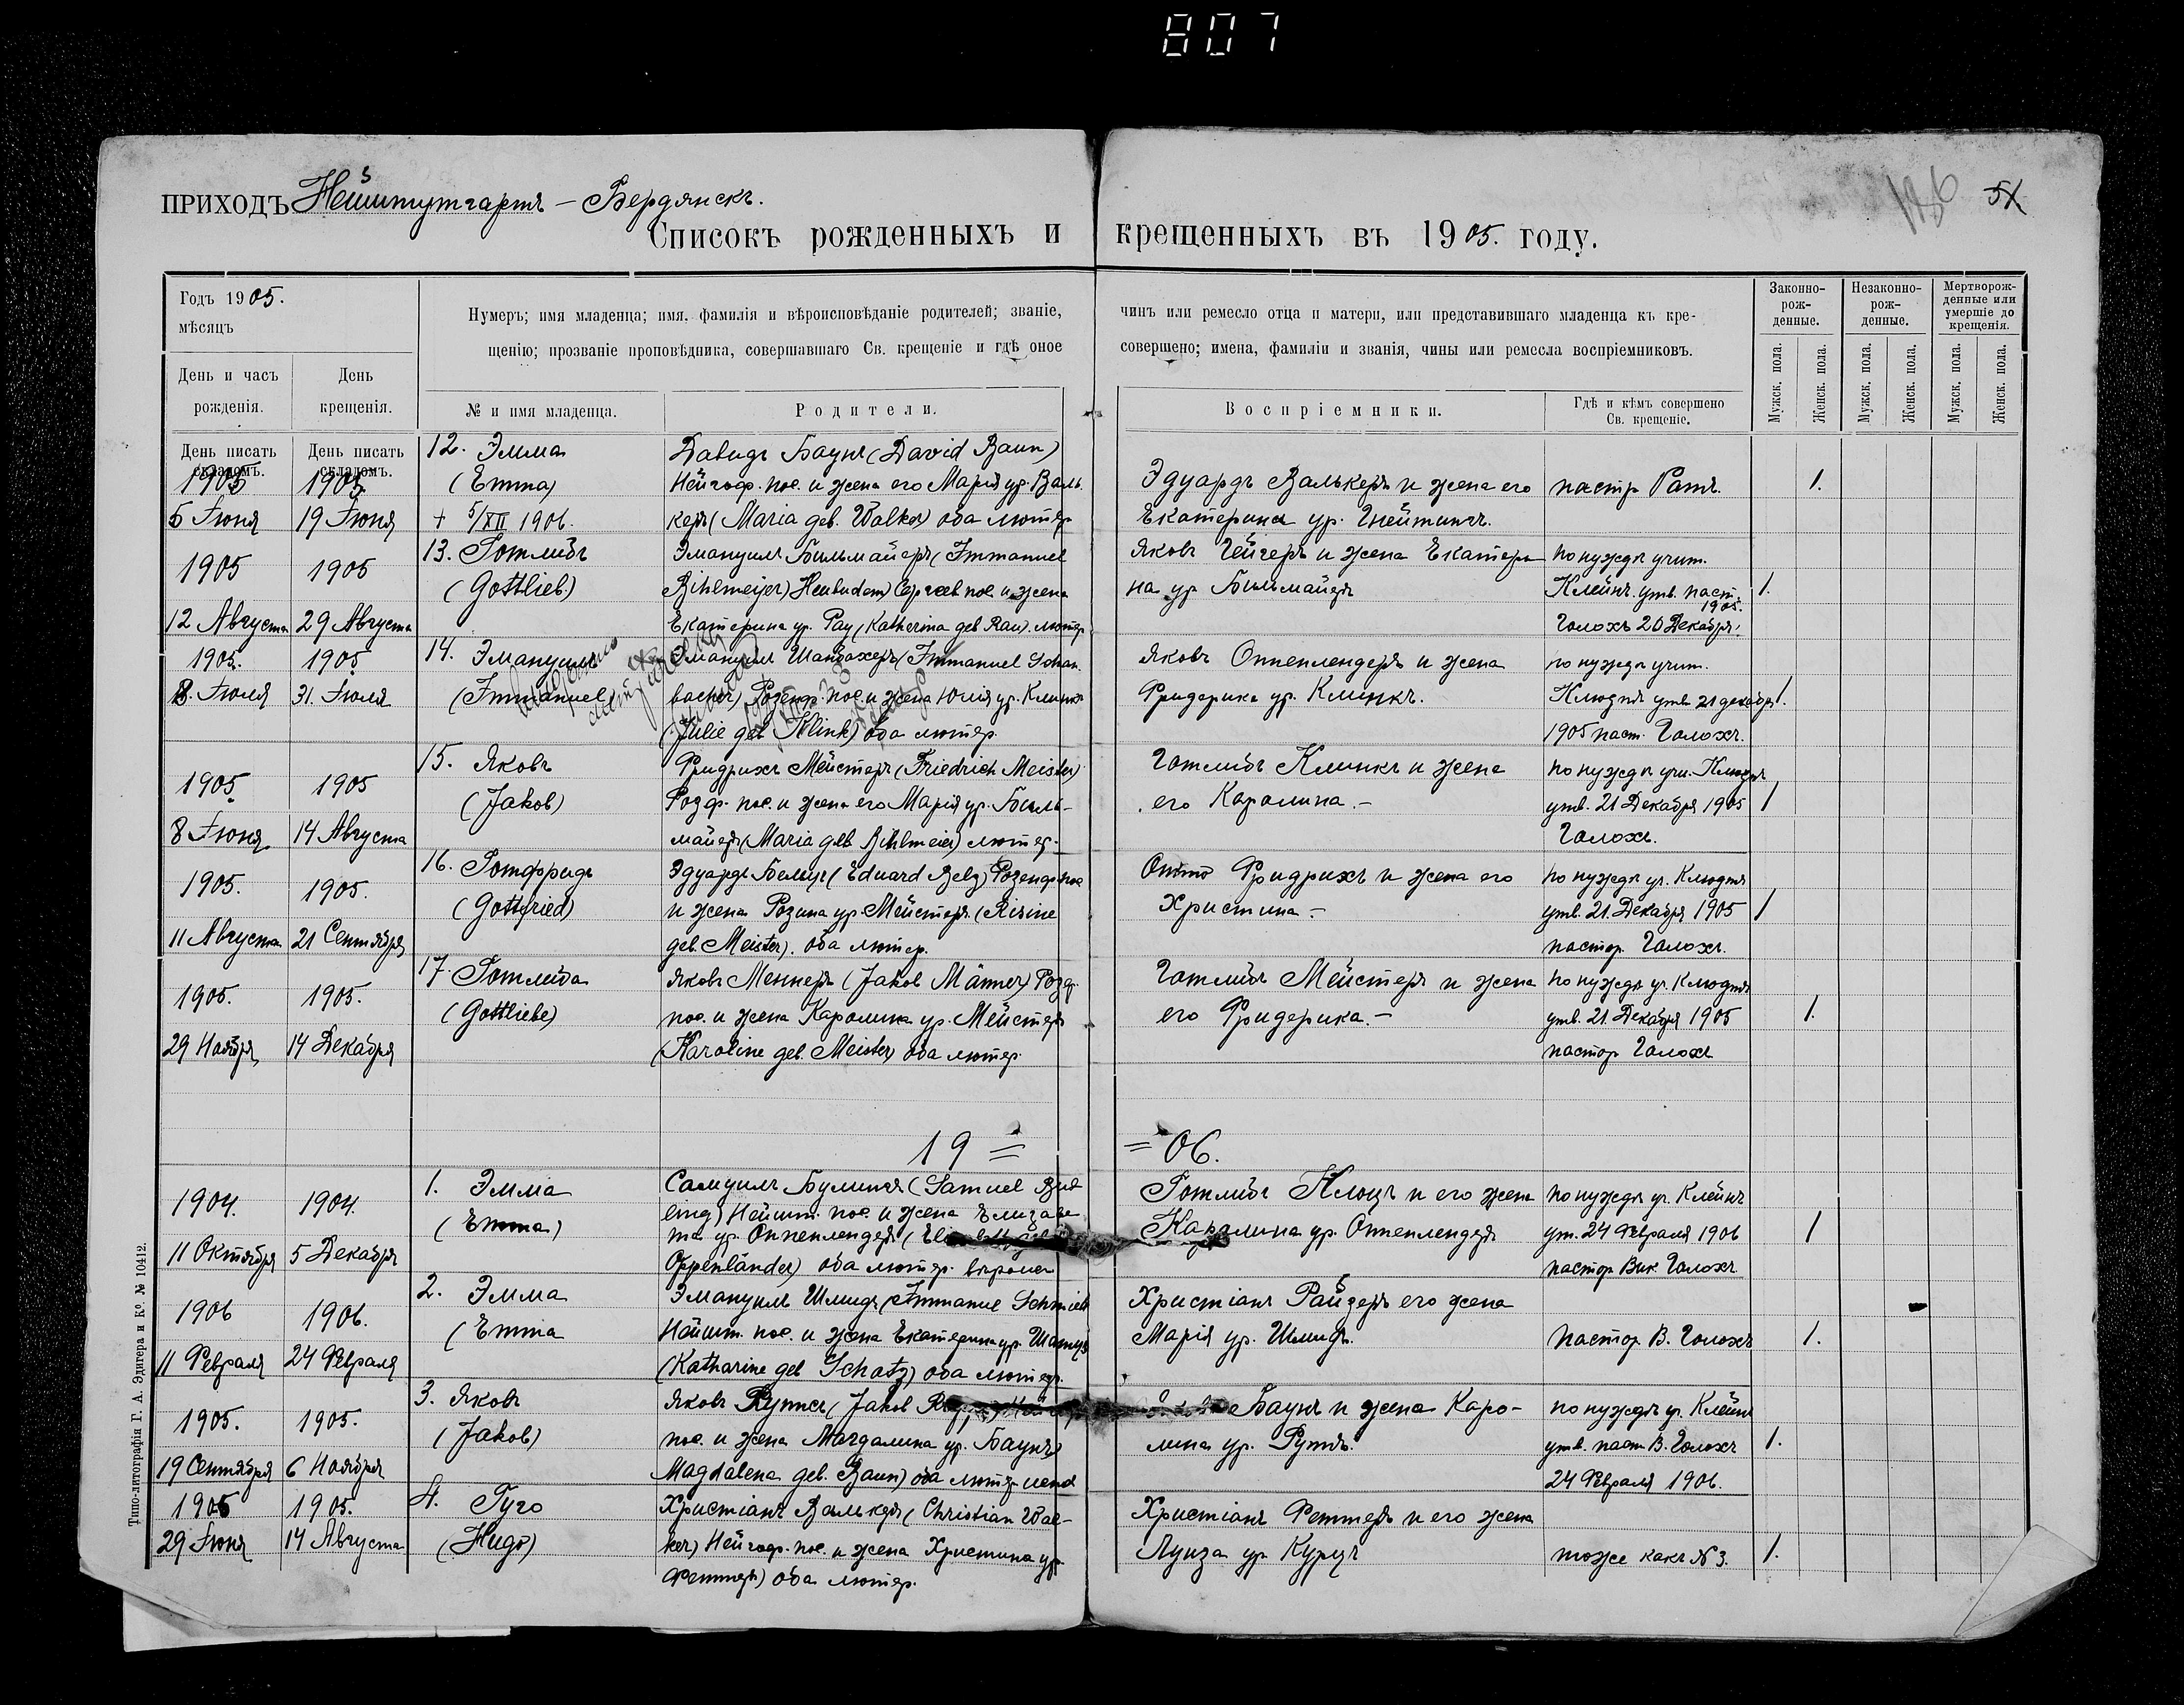 807
ПРИХОДЪ Нейштутгартъ – Бердянскъ.
51
Списокъ рожденныхъ и крещенныхъ въ 1905. году.
Годъ 1905.
мѣсяцъ
День и часъ рожденія.
День крещенія.
Нумеръ; имя младенца; имя, фамилія и вѣроисповѣданіе родителей; званіе, чинъ или ремесло отца и матери, или представившаго младенца къ кре-
щенію; прозваніе проповѣдника, совершавшаго Св. крещеніе и гдѣ оное совершено; имена, фамиліи и званія, чины или ремесла воспріемниковъ.
№ и имя младенца.
Родители.
Воспріемники.
Гдѣ и кѣмъ совершено Св. крещеніе.
Законно-рож-денные.
Незаконно-рож-денные.
Мертворож-денные или умершіе до крещенія.
Мужск. пола. Женск. пола. Мужск. пола. Женск. пола. Мужск. пола. Женск. пола.
День писать складомъ.
День писать складомъ.
1905 1905
5 Іюня 19 Іюня
12. Эмма
(Emma)
+ 5/XII 1906.
Давидъ Баунъ (David Baun)
Нейгоф. пос. и жена его Марія ур. Валь-
керъ (Maria geb. Walker) оба лютер.
Эдуардъ Валькеръ и жена его
Екатерина ур.
пастр Ратъ.
1.
1905 1905
12 Августа 29 Августа
13. Готлибъ
(Gottlieb)
Эмануилъ Бильмайеръ (Immanuel
Bihlmeijer) пос. и жена
Екатерина ур. Рау (Katherina geb Rau). лютер
Яковъ Гейгеръ и жена Екатери-
на ур Бильмайеръ
по нуждѣ учит.
Клейнъ. утв. паст.
1905.
Голохъ 20 Декабря.
1.
1905. 1905
8. Іюля 31. Іюля
14. Эмануилъ
(Immanuel
Эмануилъ Шанбахеръ (Immanuel Schan-
bacher) Розенф. пос. и жена Юлія ур. Клинкъ
(Julie geb Klink) оба лютер.
Яковъ Оппенлендеръ и жена
Фридерика ур. Клинкъ.
по нуждѣ учит.
Клюдтъ утв 21 декабря
1905 паст. Голохъ.
1.
1905 1905
8 Іюня 14 Августа
15. Яковъ
(Jakob)
Фридрихъ Мейстеръ (Friedrich Meister)
Розф. пос. и жена его Марія ур. Биль-
майеръ (Maria geb Bihlmeier) лютер.
Готлибъ Клинкъ и жена
его Каролина. –
по нуждѣ учи. Клюдтъ
утв. 21 Декабря 1905
Голохъ.
1
1905. 1905.
11 Августа 21 Сентября
16. Готфридъ
(Gottfried)
Эдуардъ Бельцъ (Eduard Belz) Розенф. пос
и жена Розина ур Мейстеръ (Risine
geb. Meister). оба лютер.
Отто Фридрихъ и жена его
Христина –
по нуждѣ уч. Клюдтъ
утв. 21. Декабря 1905
пастор. Голохъ.
1
1905. 1905.
29 Ноября, 14 Декабря
17. Готлиба
(Gottliebe)
Яковъ Меннеръ (Jakob Männer) Розф.
пос. и жена Каролина ур. Мейстеръ
(Karoline geb. Meister) оба лютер.
Готлибъ Мейстеръ и жена
его Фридерика. –
по нуждѣ уч. Клюдтъ
утв. 21. Декабря 1905
пастор Голохъ
1.
19 = = 06.
1904. 1904.
11 Октября 5 Декабря
1. Эмма
(Emma)
Самуилъ Будлингъ (Samuel Bud
ling) Нейшт. пос. и жена Елизаве
та ур. Оппенлендеръ
Oppenländer) оба лютер.
Готлибъ Клоцъ и его жена
Каролина ур. Оппенлендеръ
по нуждѣ уч. Клейнъ
ут. 24 Февраля 1906
пастор Вик. Голохъ
1
1906 1906.
11 Февраля 24 Февраля
2. Эмма
(Emma
Эмануилъ Шмидъ (Immanuel Schmidt
Нейшт. пос. и жена Екатерина ур. Шатцъ
(Katharine geb Schatz) оба лютер.
Христіанъ Райзеръ его жена
Марія ур. Шмидъ.
Пастор. В. Голохъ
1.
1905. 1905.
19 Сентября 6 Ноября
3. Яковъ
(Jakob)
Яковъ Руппъ (Jakob
пос. и жена Магдалина ур. Баунъ
Magdalena geb. Baun) оба лютер
Баунъ и жена Каро-
лина ур. Рутъ.
по нуждѣ у. Клейнъ
утв. паст В. Голохъ
24 Февраля 1906.
1.
1905 1905.
29 Іюня 14 Августа
4. Гуго
(Hugo)
Христіанъ Валькеръ (Christian Wal-
ker) Нейгоф. пос. и жена Христина ур.
Феттеръ) оба лютер.
Христіанъ Феттеръ и его жена
Луиза ур Курцъ
тоже какъ № 3.
1.
Типо-литографія Г. А. Эдигера и Ко. № 10412.